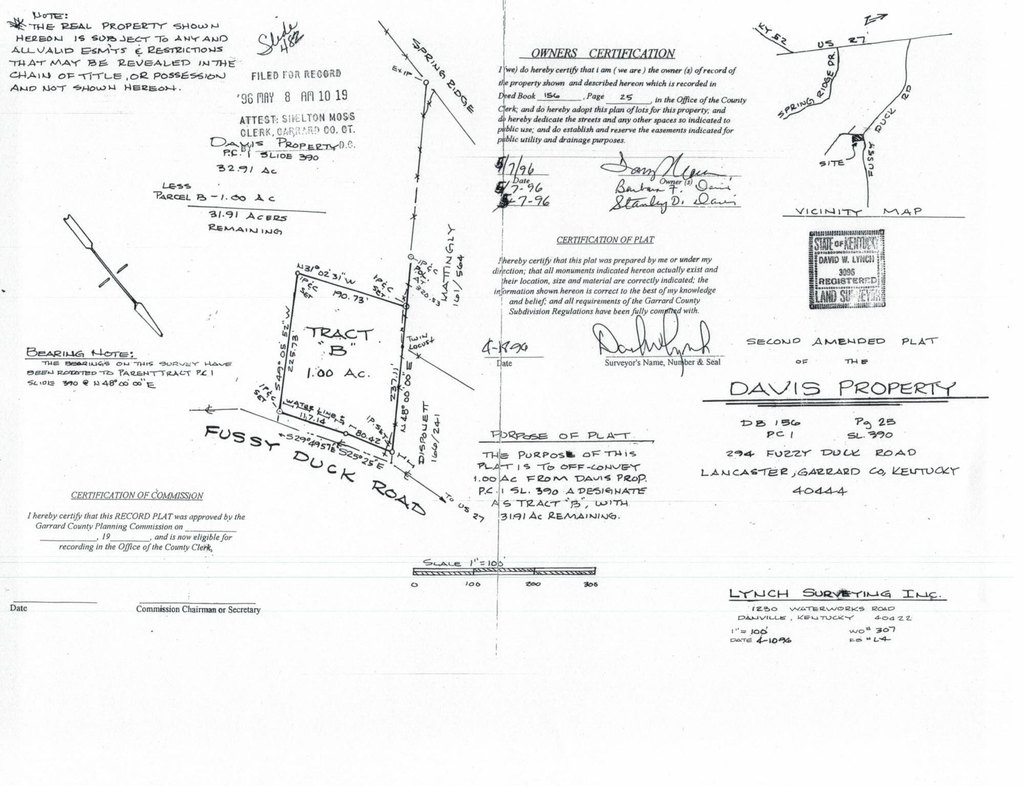 NOTE:
THE REAL PROPERTY SHOWN
HEREON IS SUBJECT TO ANY AND
ALL VALID ESM'TS & RESTRICTIONS
THAT MAY BE REVEALED IN THE
CHAIN OF TITLE, OR POSSESSION
AND NOT SHOWN HEREON.
Slide
482
FILED FOR RECORD
'96 MAY 8 AM 10 19
ATTEST: SHELTON MOSS
CLERK, GARRARD CO. CT.
D.C.
DAVIS PROPERTY
P.C. 1 SLIDE 390
32.91 AC
LESS
PARCEL B - 1.00 AC
31.91 ACERS
REMAINING
BEARING NOTE:
THE BEARINGS ON THIS SURVEY HAVE
BEEN ROTATED TO PARENT TRACT PC 1
SLIDE 390 @ N48°00'00"E
EXIP
SPRING RIDGE
MATTINGLY
161/564
N31°02'31"W
190.73'
IP&C
SET
IP&C
SET
TRACT
"B"
1.00 AC.
S49°05'52"W
225.73'
TWIN
LOCUST
237.11'
N48°00'00"E
IP&C
SET
WATER LINE
117.14'
80.42'
IP SET
S29°49'57"E
S25°25'E
DISPONETT
166/241
FUSSY DUCK ROAD
TO US 27
CERTIFICATION OF COMMISSION
I hereby certify that this RECORD PLAT was approved by the
Garrard County Planning Commission on
, 19 , and is now eligible for
recording in the Office of the County Clerk,
Date
Commission Chairman or Secretary
OWNERS CERTIFICATION
I (we) do hereby certify that i am ( we are ) the owner (s) of record of
the property shown and described hereon which is recorded in
Deed Book 156 , Page 25 , in the Office of the County
Clerk; and do hereby adopt this plan of lots for this property; and
do hereby dedicate the streets and any other spaces so indicated to
public use; and do establish and reserve the easements indicated for
public utility and drainage purposes.
5/7/96
Date
Owner (s)
5-7-96
Barbara F. Davis
5-7-96
Stanley D. Davis
CERTIFICATION OF PLAT
I hereby certify that this plat was prepared by me or under my
direction; that all monuments indicated hereon actually exist and
their location, size and material are correctly indicated; the
information shown hereon is correct to the best of my knowledge
and belief; and all requirements of the Garrard County
Subdivision Regulations have been fully complied with.
David W Lynch
Date
Surveyor's Name, Number & Seal
PURPOSE OF PLAT
THE PURPOSE OF THIS
PLAT IS TO OFF-CONVEY
1.00 AC FROM DAVIS PROP.
P.C. 1 SL. 390 A DESIGNATE
AS TRACT "B", WITH
31.91 AC REMAINING.
SCALE 1"=100
0 100 200 300
KY 52
US 27
SPRING RIDGE DR.
FUSSY DUCK RD
SITE
VICINITY MAP
STATE OF KENTUCKY
DAVID W. LYNCH
3096
REGISTERED
LAND SURVEYOR
SECOND AMENDED PLAT
OF THE
DAVIS PROPERTY
DB 156 Pg 25
PC 1 SL. 390
294 FUZZY DUCK ROAD
LANCASTER, GARRARD CO, KENTUCKY
40444
LYNCH SURVEYING INC.
1250 WATERWORKS ROAD
DANVILLE, KENTUCKY 40422
1" = 100' WO# 307
DATE 4-10-96